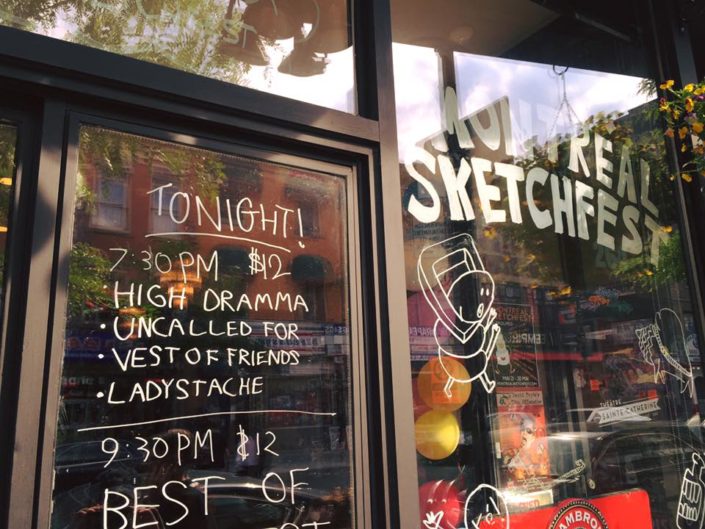 TONIGHT!
7:30PM $12
• HIGH DRAMMA
• UNCALLED FOR
• VEST OF FRIENDS
• LADYSTACHE
9:30 PM $12
BEST OF
MONTREAL
SKETCHFEST
THEATRE
SAINTE CATHERINE